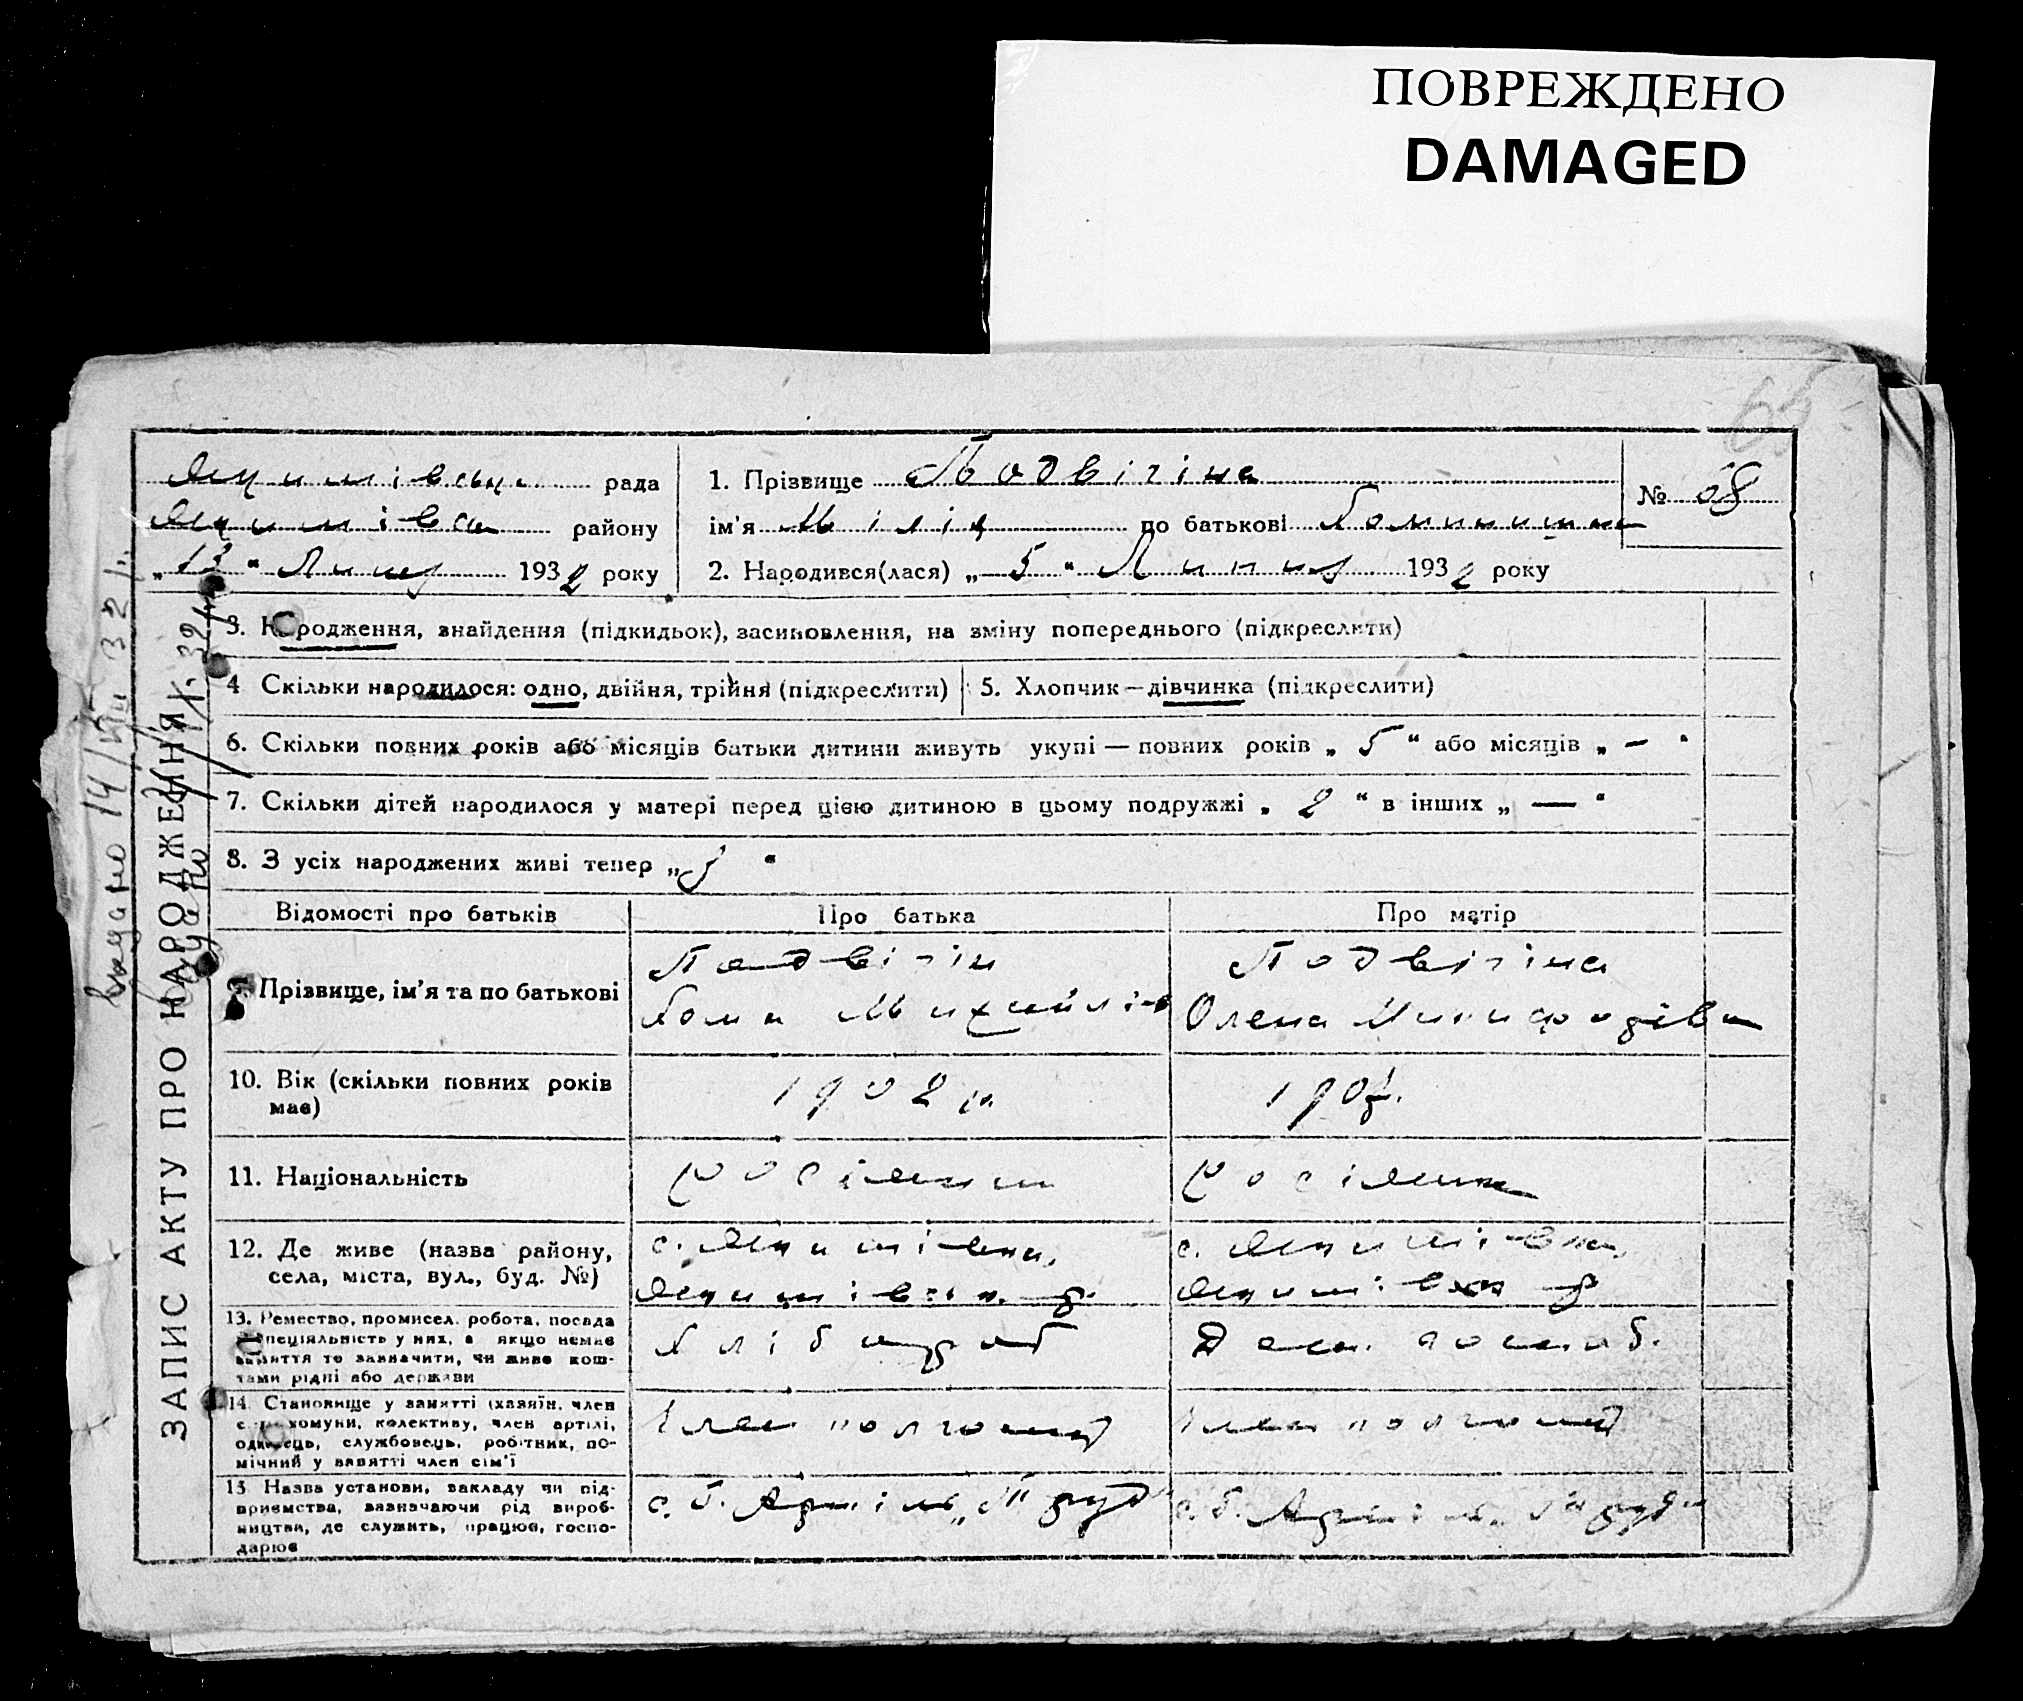 ПОВРЕЖДЕНО
DAMAGED
65
Якимівська рада
Якимівськ району
„13“ Липня 1932 року
1. Прізвище Подвігіна
ім'я Лілія по батькові Хомишна
№ 68
2. Народився(лася) „5“ Липня 1932 року
ЗАПИС АКТУ ПРО НАРОДЖЕННЯ
видано 14/VIII 32 р.
3. Народження, знайдення (підкидьок), засиновлення, на зміну попереднього (підкреслити)
4 Скільки народилося: одно, двійня, трійня (підкреслити)
5. Хлопчик—дівчинка (підкреслити)
6. Скільки повних років або місяців батьки дитини живуть укупі — повних років „5“ або місяців „—“
7. Скільки дітей народилося у матері перед цією дитиною в цьому подружжі „2“ в інших „—“
8. З усіх народжених живі тепер „3“
Відомості про батьків
Про батька
Про матір
9. Прізвище, ім'я та по батькові
Подвігін
Хома Михайлів
Подвігіна
Олена Никифорівна
10. Вік (скільки повних років має)
1902 р.
190
11. Національність
росіянин
росіянка
12. Де живе (назва району,
села, міста, вул., буд. №)
с. Якимівка,
Якимівськ. р.
с. Якимівка,
Якимівськ р
13. Ремество, промисел, робота, посада
спеціяльність у них, а якщо немає
заняття то зазначити, чи живе кош-
тами рідні або держави
Хлібороб
Дом. господ.
14. Становище у занятті (хазяїн, член
комуни, колективу, член артілі,
одинець, службовець, робітник, по-
мічний у занятті член сім'ї
Член колгоспу
Член колгоспу
15 Назва установи, закладу чи під-
приємства, зазначаючи рід вироб-
ництва, де служить, працює, госпо-
дарює
с. г. Артіль „Труд“
с. г. Артіль „Труд“